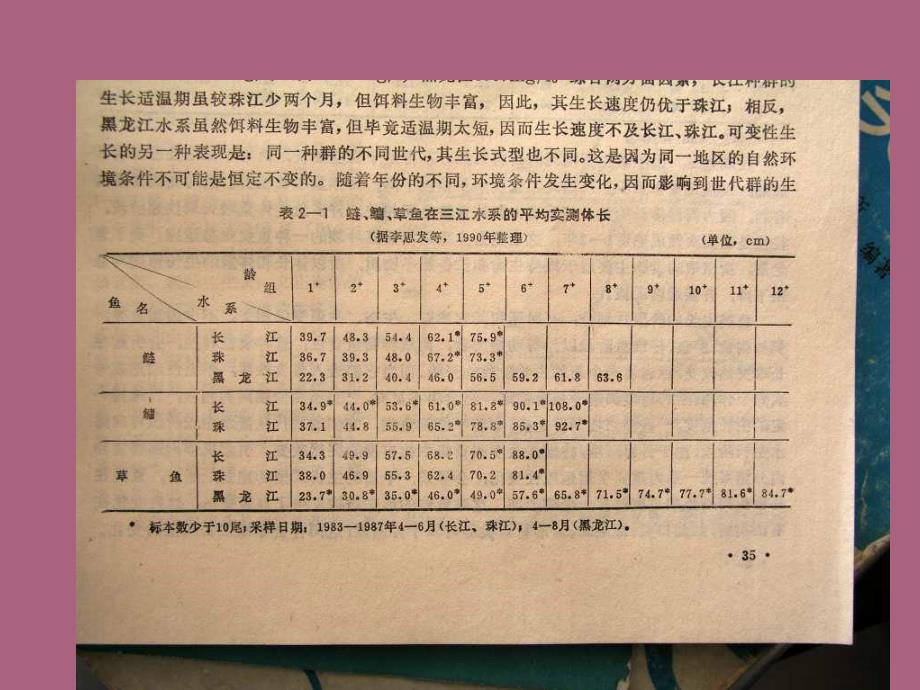 生长适温期虽较珠江少两个月，但饵料生物丰富，因此，其生长速度仍优于珠江；相反，
黑龙江水系虽然饵料生物丰富，但毕竟适温期太短，因而生长速度不及长江、珠江。可变性生
长的另一种表现是：同一种群的不同世代，其生长式型也不同。这是因为同一地区的自然环
境条件不可能是恒定不变的。随着年份的不同，环境条件发生变化，因而影响到世代群的生
表2—1 鲢、鳙、草鱼在三江水系的平均实测体长
（据李思发等，1990年整理） （单位，cm）
鱼名 水系 龄组 1⁺ 2⁺ 3⁺ 4⁺ 5⁺ 6⁺ 7⁺ 8⁺ 9⁺ 10⁺ 11⁺ 12⁺
鲢 长江 39.7 48.3 54.4 62.1* 75.9*
珠江 36.7 39.3 48.0 67.2* 73.3*
黑龙江 22.3 31.2 40.4 46.0 56.5 59.2 61.8 63.6
鳙 长江 34.9* 44.0* 53.6* 61.0* 81.8* 90.1* 108.0*
珠江 37.1 44.8 55.9 65.2* 78.8* 85.3* 92.7*
草鱼 长江 34.3 49.9 57.5 68.2 70.5* 88.0*
珠江 38.0 46.9 55.3 62.4 70.2 81.4*
黑龙江 23.7* 30.8* 35.0* 46.0* 49.0* 57.6* 65.8* 71.5* 74.7* 77.7* 81.6* 84.7*
* 标本数少于10尾；采样日期：1983—1987年4—6月（长江、珠江）；4—8月（黑龙江）。
· 35 ·
编著